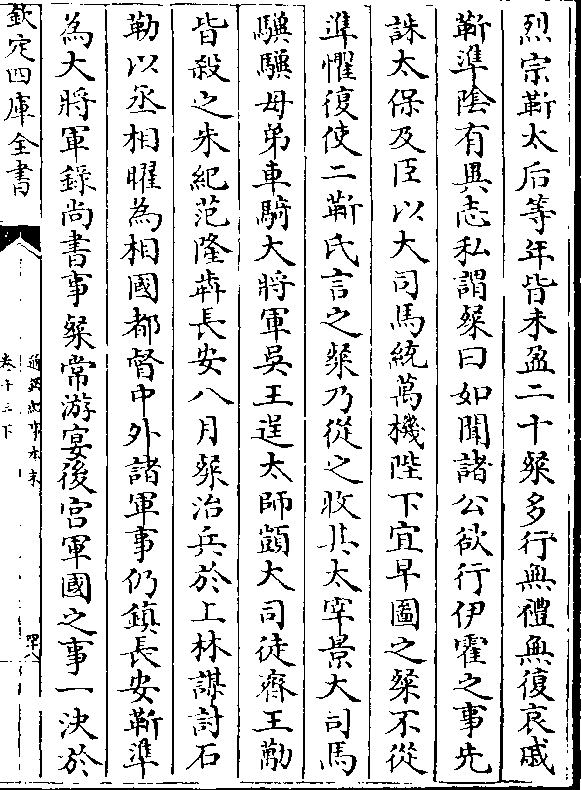 烈宗靳太后等年皆未盈二十粲多行無禮無復哀戚
靳準隂有異志私謂粲曰如聞諸公欲行伊霍之事先
誅太保及臣以大司馬統萬機陛下宜早圖之粲不從
準懼復使二靳氏言之粲乃從之收其太宰景大司馬
驥驥母弟車騎大將軍吳王逞太師顗大司徒齊王勱
皆殺之朱紀范隆犇長安八月粲治兵於上林謀討石
勒以丞相曜為相國都督中外諸軍事仍鎮長安靳準
為大將軍錄尚書事粲常游宴後宮軍國之事一決於
欽定四庫全書
通鑑紀事本末
卷十三下
四十八